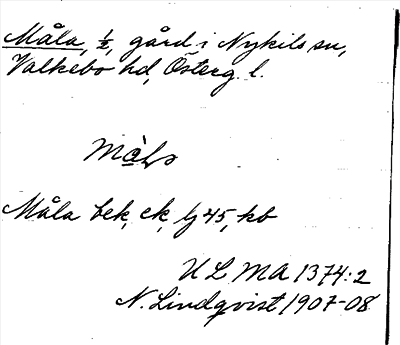 Måla, ½, gård i Nykils sn,
Valkebo hd, Österg. l.
Måla bek, ek, lj 45, kb
ULMA 1374:2
N. Lindqvist 1907-08